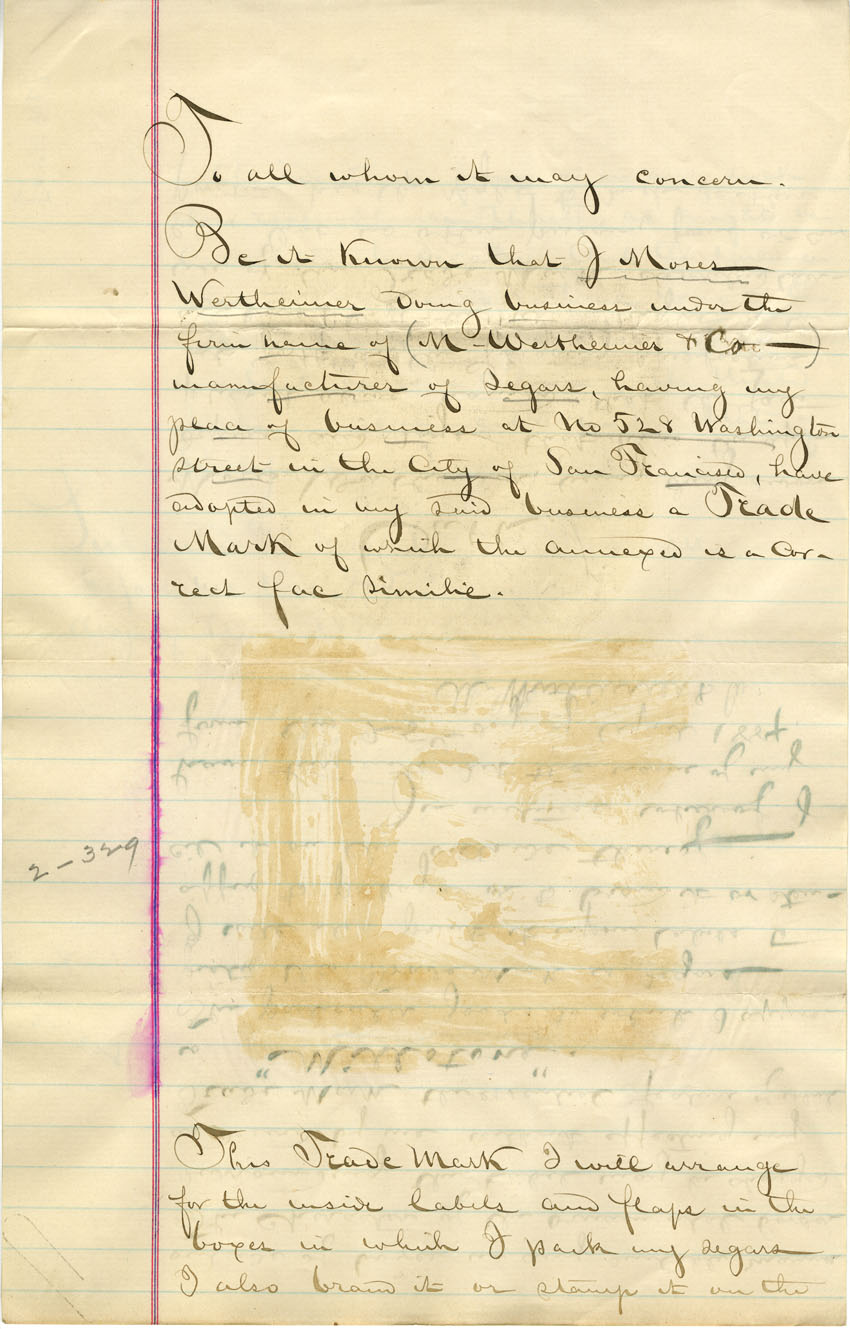 To all whom it may concern.
Be it Known that I Moses
Wertheimer doing business under the
firm name of (M-Wertheimer & Co —)
manufacturer of segars, having my
place of business at No 528 Washington
street in the City of San Francisco, have
adopted in my said business a Trade
Mark of which the annexed is a Cor-
rect fac similie.
2-329
This Trade Mark I will arrange
for the inside labels and flaps in the
boxes in which I pack my segars
I also brand it or stamp it on the